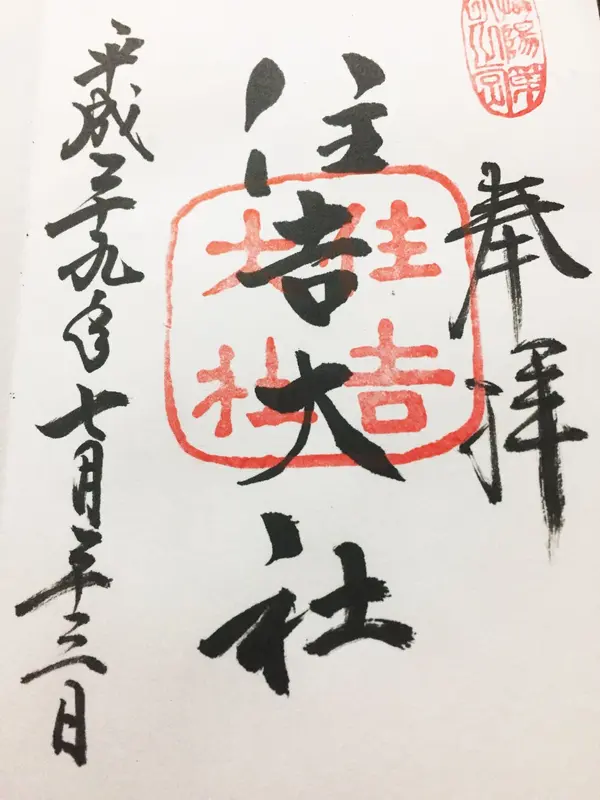 奉拝
住吉大社
住吉
大社
平成二十九年七月二十三日